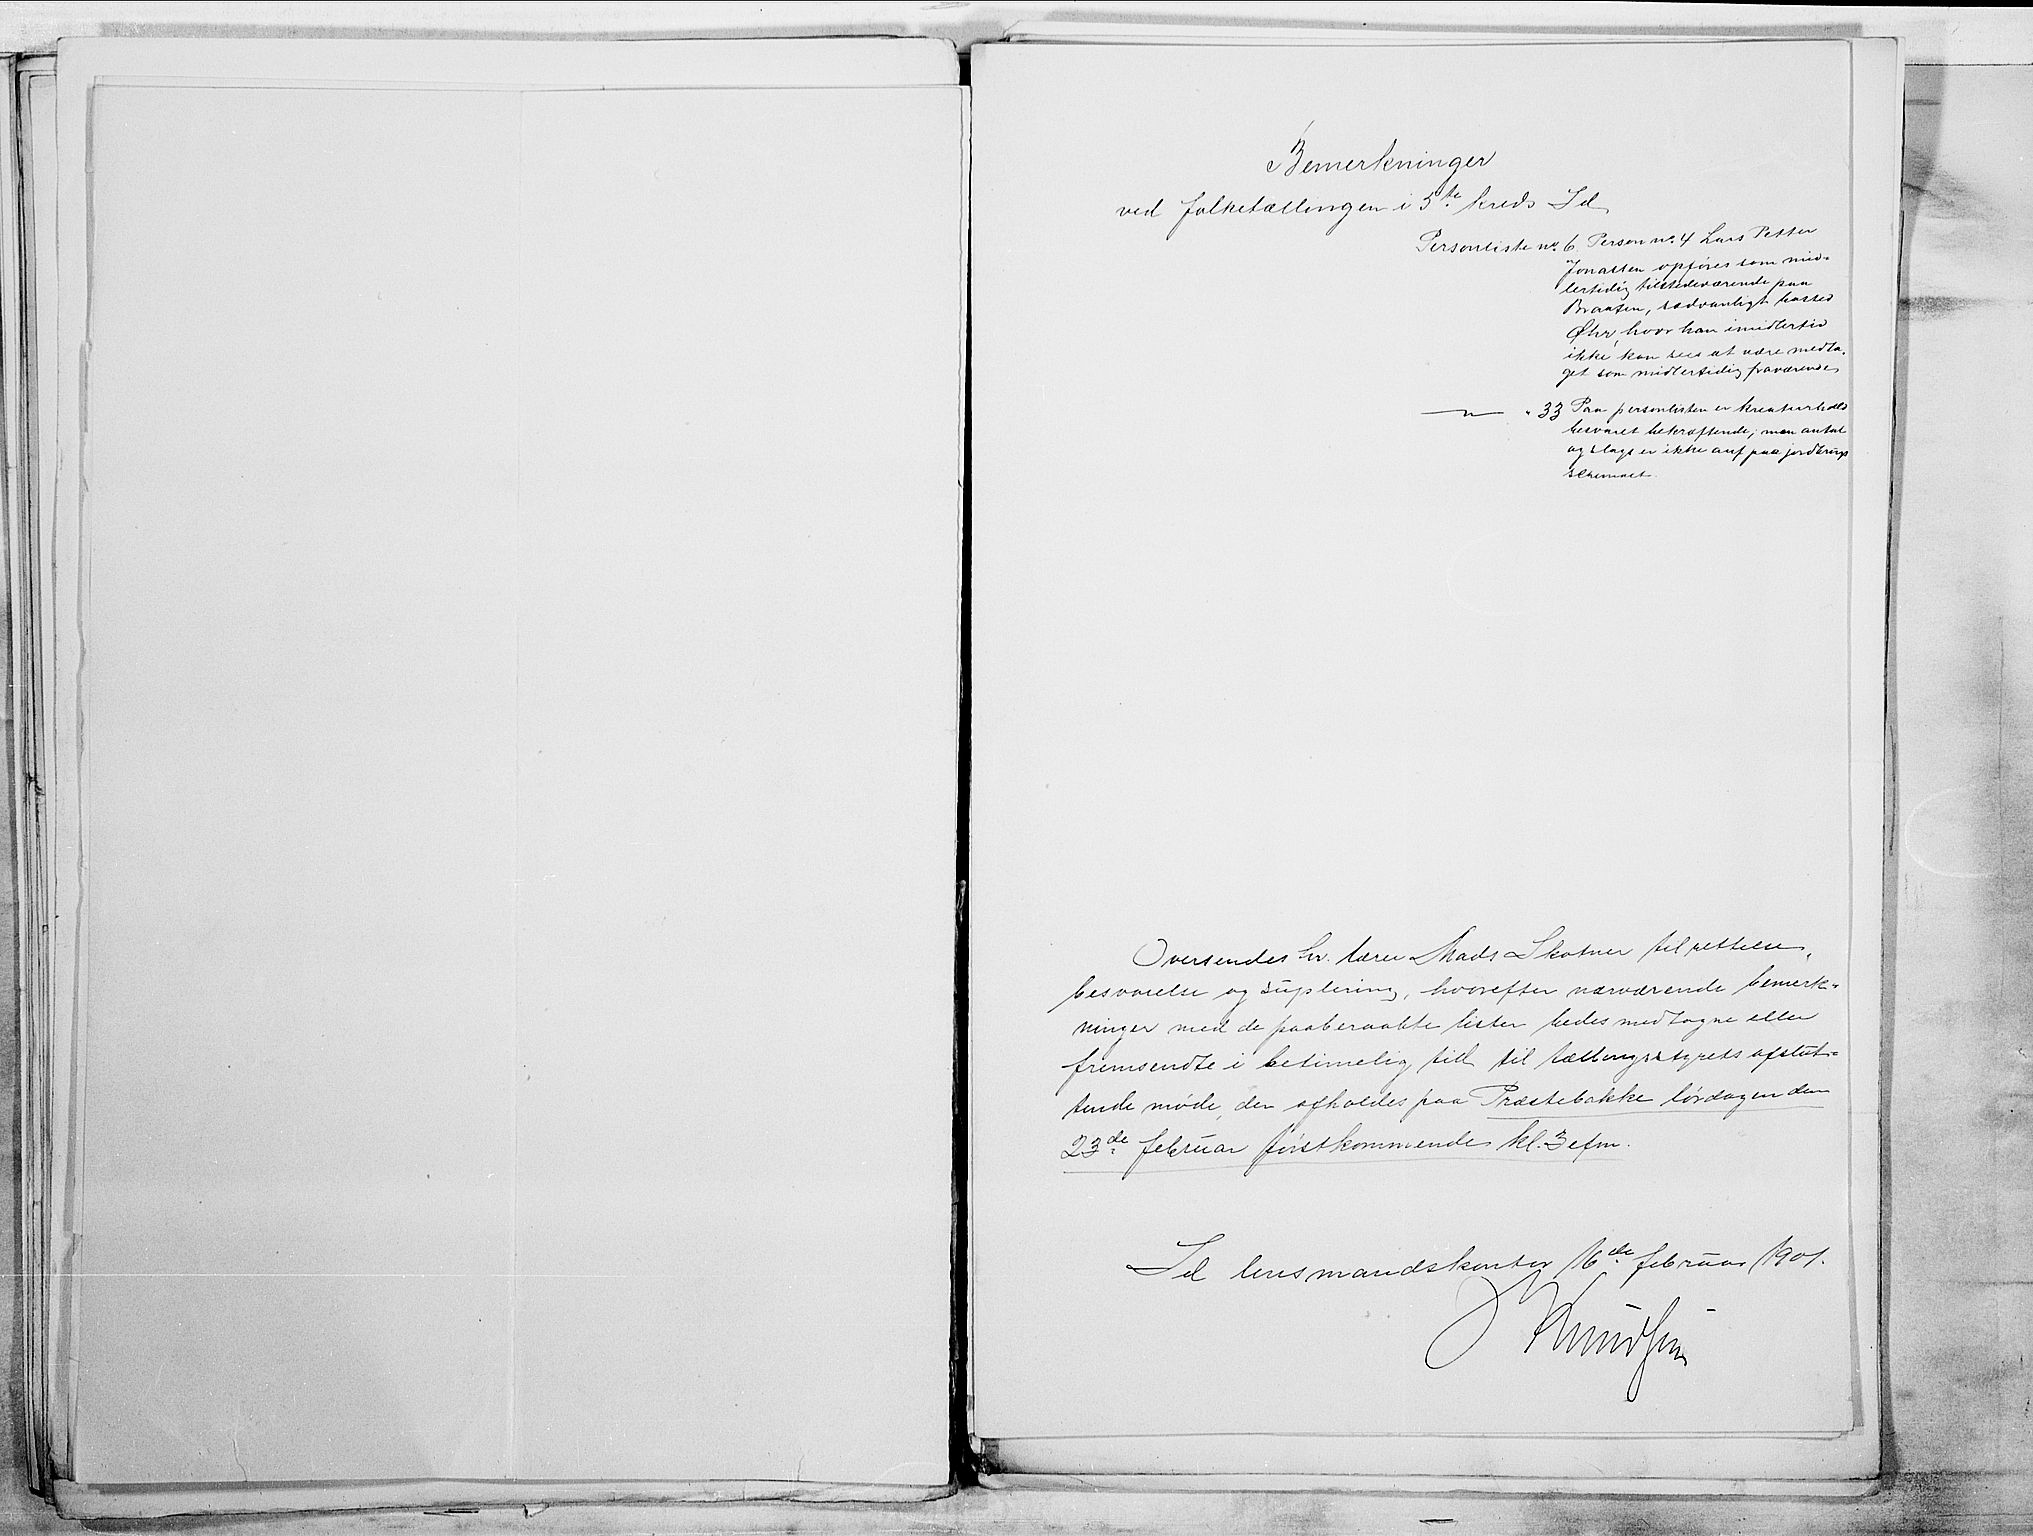 Bemerkninger
ved folketællingen i 5te kreds Id
Personliste no. 6. Person no. 4 Lars Petter
Jonassen opføres som mid-
lertidig tilstedeværende paa
Braaten, sædvanligt bosted
Øhr, hvor han imidlertid
ikke kan sees at være medta-
get som midlertidig fraværende
—"— " 33 Paa personlisten er kreaturhold
besvaret bekræftende; men antal
og slags er ikke anf paa jordbrugs
schemaet.
Oversendes hr. lærer Mads Skotner til rettelse,
besvarelse og suplering, hvorefter nærværende bemerk-
ninger med de paaberaabte lister bedes medtagne eller
fremsendte i betimelig tid til tællingsstyrets afslut-
tende møde, der afholdes paa Præstebakke lørdagen den
23de februar førstkommende kl. 3 efm.
Id lensmandskontor 16de februar 1901.
J Knudsen